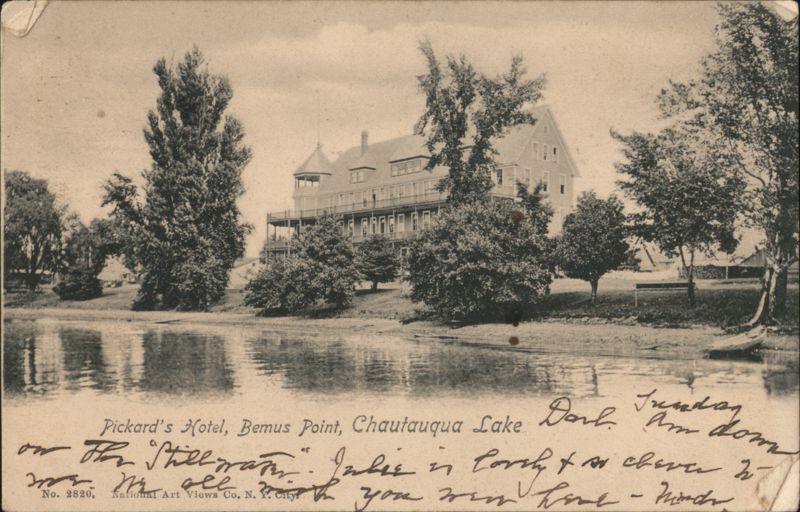 Pickard's Hotel, Bemus Point, Chautauqua Lake
Sunday
Am down
on the "Stillwater". Julie is lovely & so clever to
me. We all wish you were here -
No. 2820, National Art Views Co, N. Y. City.